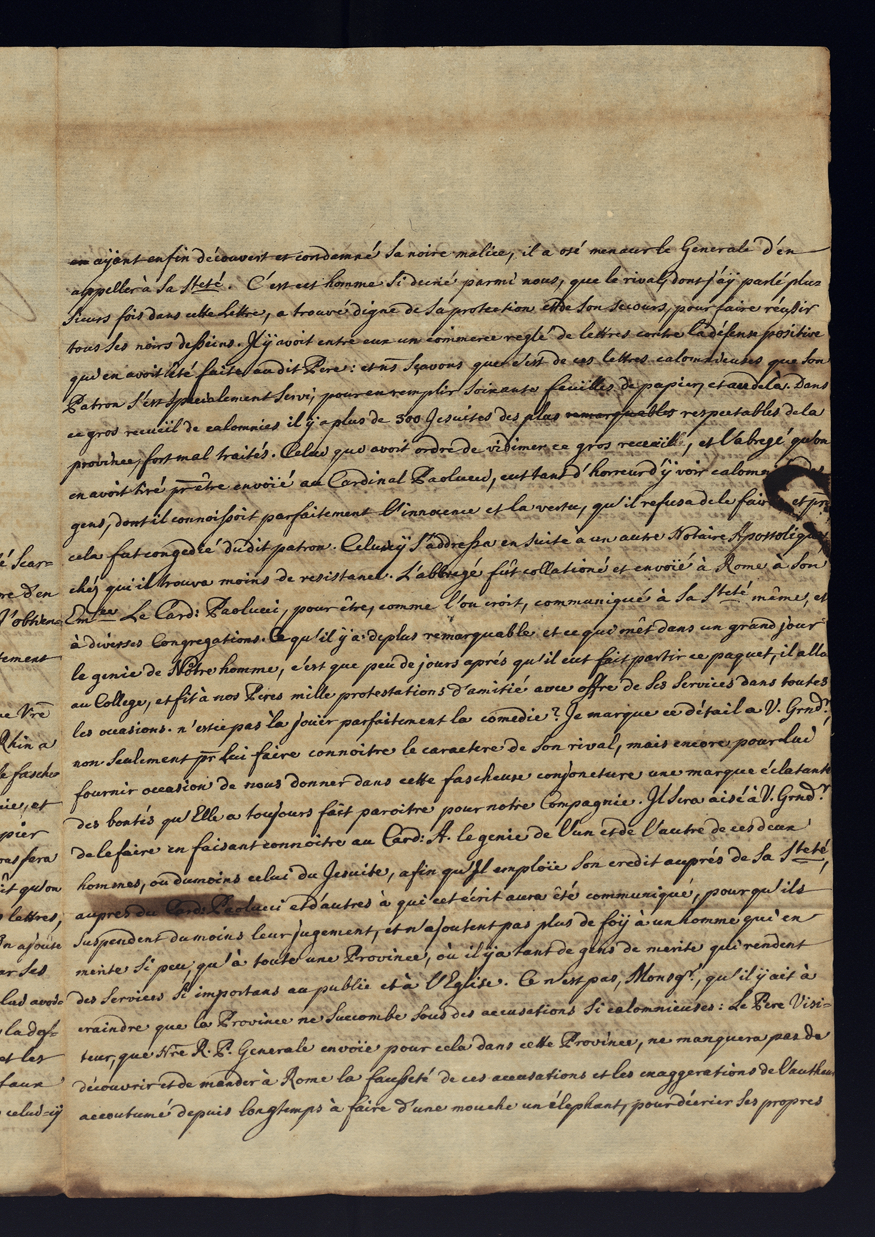 en aÿant enfin découvert et condamné sa noire malice, il a osé menacer le Generale d'en
appeller à sa Steté. C'est cet homme si decrié parmi nous, que le rival, dont j'aÿ parlé plu-
sieurs fois dans cette Lettre, a trouvé digne de sa protection et de son secours, pour faire réussir
tous ses noirs desseins. Il ÿ avoit entre eux un commerce reglé de lettres contre la défense positive
qui en avoit été faite audit Pere: et ns sçavons que c'est de ces lettres calomnieuses que son
Patron s'est specialement servi, pour en remplir soixante feuilles de papier, et au dela. Dans
ce gros recueil de calomnies il ÿ a plus de 300 Jesuites des plus remarquables respectables de la
province, fort mal traités. Celui que avoit ordre de vidimer ce gros receuil, et l'abregé qu'on
en avoit tiré pr être envoïé au Cardinal Paolucci, eut tant d'horreur d'ÿ voir calomnier des
gens, dont il connoissoit parfaitement l'innocence et la vertu, qu'il refusa de le faire et pr
cela fut congedié dudit patron. Celuicÿ s'addressa en suite a un autre Notaire Apostolique,
chéz qui il trouva moins de resistance. L'abbregé fut collationé et envoié à Rome à son
Emce Le Card: Paolucci, pour être, comme l'on croit, communiqué à Sa Steté même, et
à diverses Congregations. Ce qu'il ÿ a de plus remarquable et ce qui mêt dans un grand jour
le genie de Nôtre homme, c'est que peu de jours aprés qu'il eut fait partir ce paquet, il alla
au College, et fit à nos Peres mille protestations d'amitié avec offre de ses services dans toutes
les occasions. n'estce pas la jouër parfaitement la comedie? Je marque ce détail a V. Grndr
non seulement pr Lui faire connoitre le caractere de son rival, mais encore pour lui
fournir occasion de nous donner dans cette fascheuse conjoncture une marque éclatante
des bontés qu'Elle a toujours fait paroitre pour notre Compagnie. Il sera aisé à V. Grndr
de le faire en faisant connoître au Card: A. le genie de l'un et de l'autre de ces deux
hommes, ou dumoins celui du Jesuite, afin qu'Il emploïe son credit auprés de sa Steté,
aupres du Card: Paolucci et d'autres à qui cet écrit aura été communiqué, pour qu'ils
suspendent du moins leur jugement, et n'ajoutent pas plus de foÿ à un homme qui en
merite si peu, qu'à toute une Province, où il ÿ a tant de gens de merite qui rendent
des services si importans au public et à l'Eglise. Ce n'est pas, Monsgr, qu'il ÿ ait à
craindre que la Province ne succombe sous des accusations si calomnieuses: Le Pere Visi-
teur, que Ntre R. P. Generale envoie pour cela dans cette Province, ne manquera pas de
découvrir et de mander à Rome la fausseté de ces accusations et les exaggerations de l'autheur
accoutumé depuis longtemps à faire d'une mouche un élephant, pour décrier ses propres